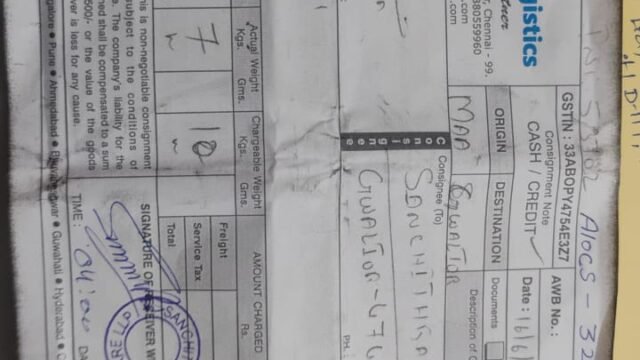 gistics
, Chennai - 99.
980559960
.com
s.com
GSTIN : 33ABOPY4754E3Z7
Consignment Note
CASH / CREDIT
AWB No. :
ORIGIN
DESTINATION
Date : 16/6/
MAA
GWALIOR
Documents
Description of C
Consignee
Consignee (To)
SANCHITHGA
GWALIOR-474
PH.:
Actual Weight
Kgs. Gms.
Chargeable Weight
Kgs. Gms.
AMOUNT CHARGED
Rs.
7
10
Freight
Service Tax
Total
his is non-negotiable consignment
subject to the conditions of
e. The company's liability for the
ned shall be compensated to a sum
500/- or the value of the goods
ver is less for any cause.
SIGNATURE OF RECEIVER W
SANCHI
TIME :
DA
galore • Pune • Ahmedabad • Bhuvaneshwar • Guwahati • Hyderabad • C